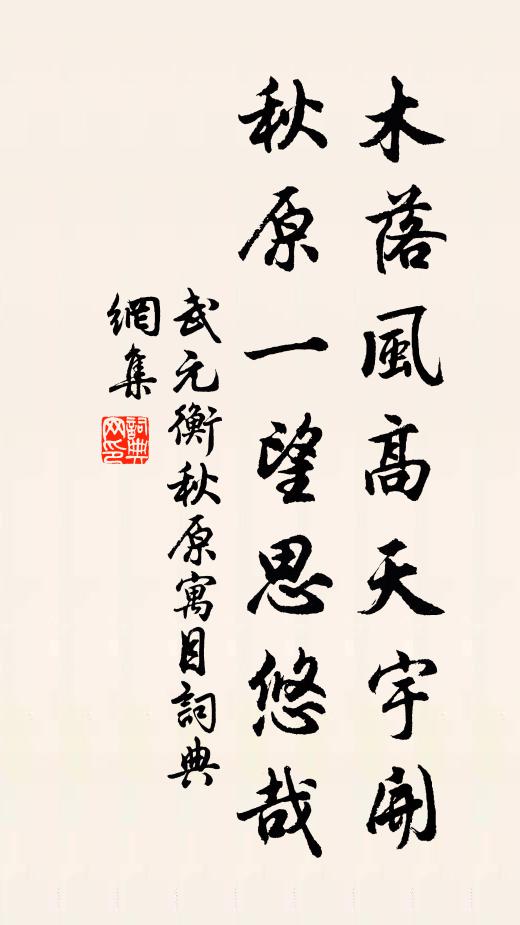 木落風高天宇開
秋原一望思悠哉
武元衡秋原寓目詞典
網集
詞典網印